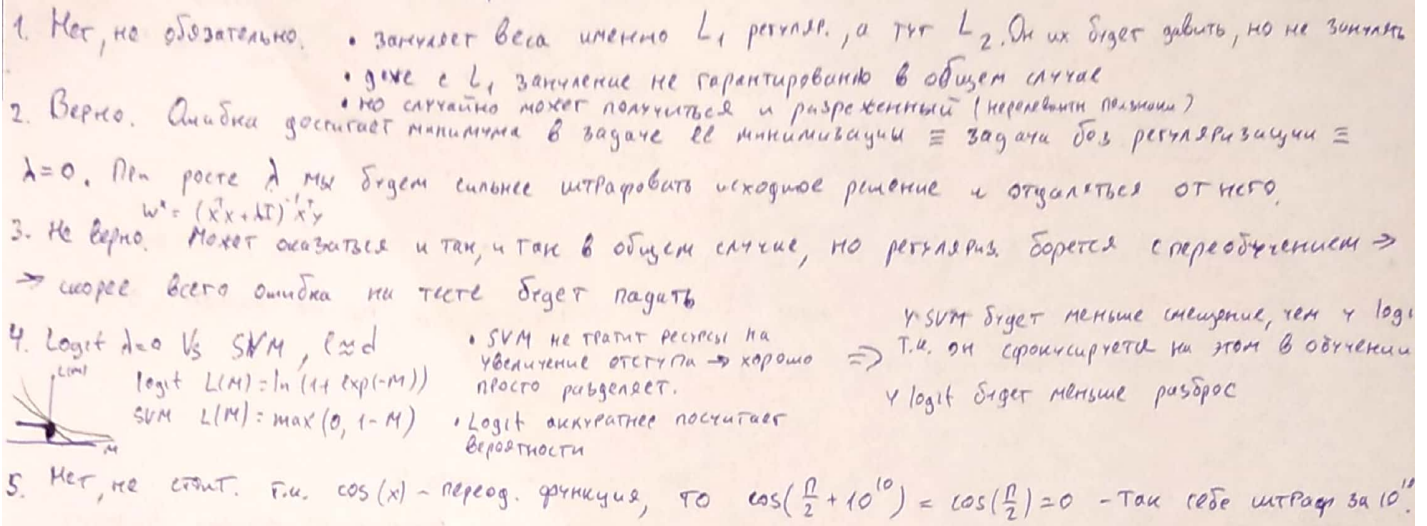 1. Нет, не обязательно. • зануляет веса именно L₁ регуляр., а тут L₂. Он их будет давить, но не занулять
• даже с L₁ зануление не гарантированно в общем случае
• но случайно может получиться и разреженный
2. Верно. Ошибка достигает минимума в задаче её минимизации ≡ задача без регуляризации ≡
λ=0. При росте λ мы будем сильнее штрафовать исходное решение и отдаляться от него.
w* = (xᵀx + λI)⁻¹xᵀy
3. Не верно. Может оказаться и так, и так в общем случае, но регуляриз. борется с переобучением ⇒
⇒ скорее всего ошибка на тесте будет падать
4. Logit λ=0 Vs SVM, l≈d
L(M)
M
logit L(M) = ln(1+exp(-M))
SVM L(M) = max(0, 1-M)
• SVM не тратит ресурсы на
увеличение отступа → хорошо
просто разделяет.
• Logit аккуратнее посчитает
вероятности
⇒ У SVM будет меньше смещение, чем у logi
т.к. он сфокусируется на этом в обучении
У logit будет меньше разброс
5. Нет, не стоит. т.к. cos(x) - период. функция, то cos(π/2 + 10¹⁰) = cos(π/2) = 0 - так себе штраф за 10¹⁰.